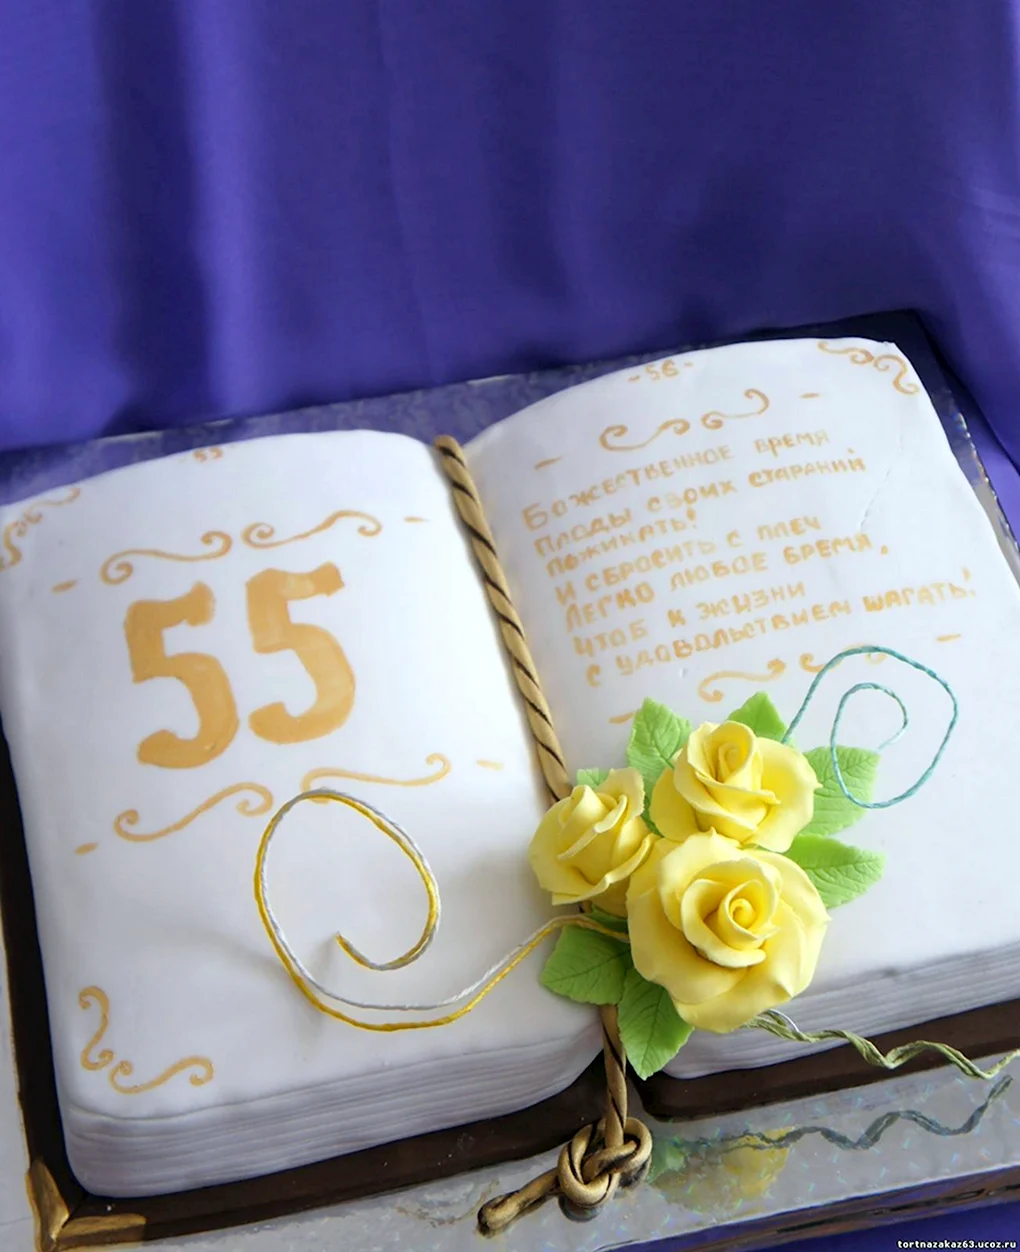 55
55
- 56 -
Божественное время
плоды своих стараний
пожинать!
И сбросить с плеч
Легко любое бремя,
чтоб к жизни
с удовольствием шагать!
tortnazakaz63.ucoz.ru